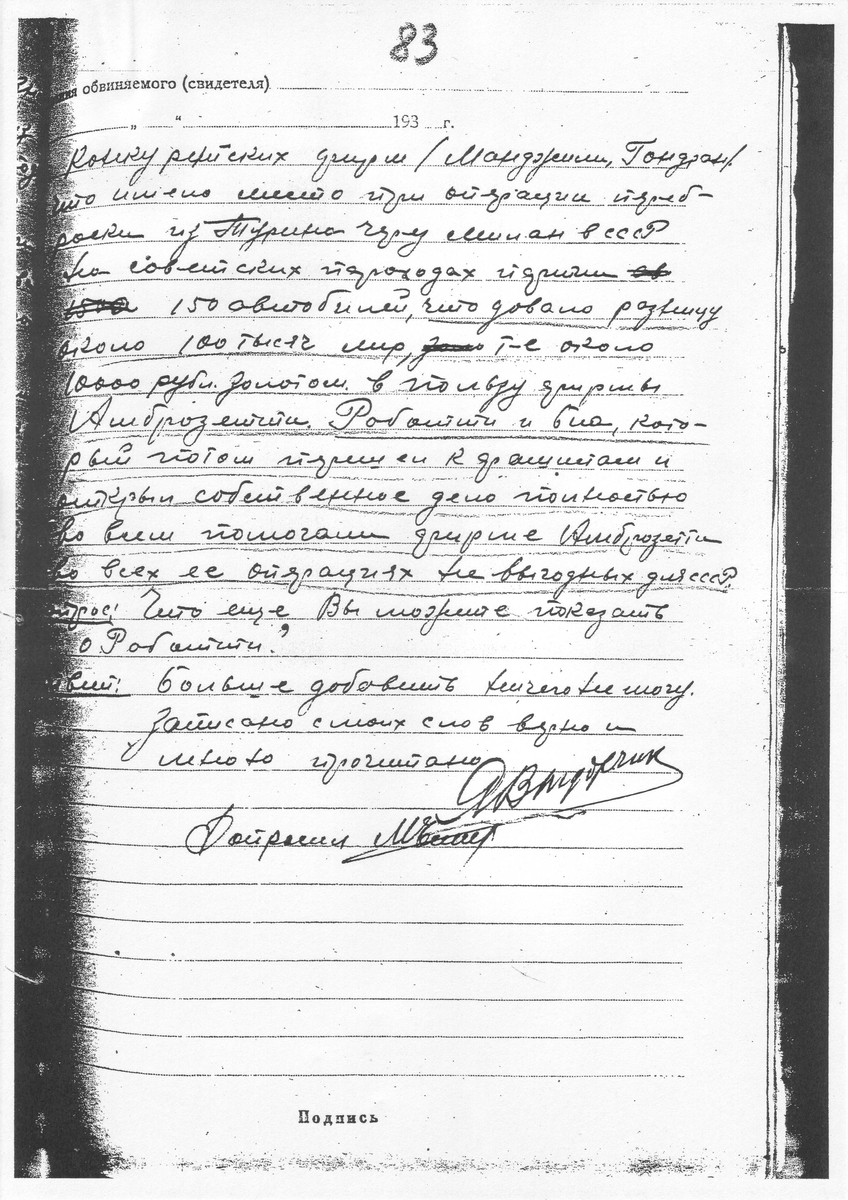 83
обвиняемого (свидетеля)
„ “ 193 г.
конкурентских фирм / Манджили, Гондран/
что имело место при операции переб-
роски из Турина через Милан в СССР
на советских пароходах партии
150 автобилей, что довало разницу
около 100 тысяч лир, т-е около
10000 рубл. золотом в пользу фирмы
Амброзетти. Работти и был, кото-
рый потом перешел к фашистам и
открыл собственное дело полностью
во всем помогали фирме Амброзетти
во всех ее операциях не выгодных для СССР.
Что еще Вы можете показать
о Работти?
Больше добавить ничего не могу.
Записано с моих слов верно и
мною прочитано
Допросил
Подпись